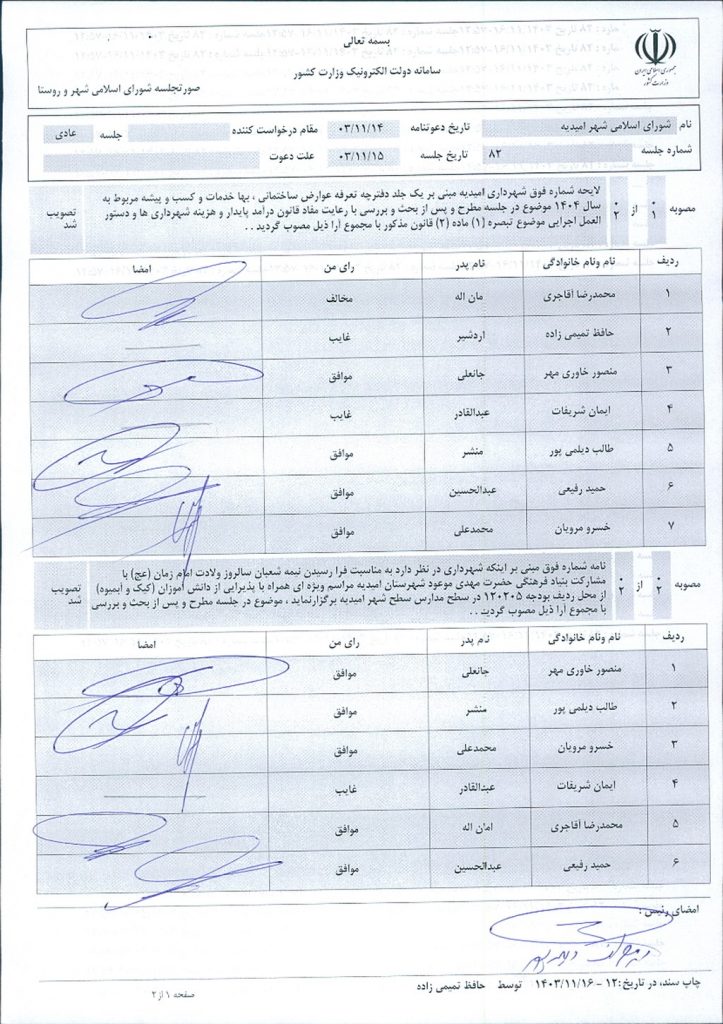 بسمه تعالی
سامانه دولت الکترونیک وزارت کشور
صورتجلسه شورای اسلامی شهر و روستا
جمهوری اسلامی ایران
وزارت کشور
نام شورای اسلامی شهر امیدیه تاریخ دعوتنامه ۰۳/۱۱/۱۴ مقام درخواست کننده جلسه عادی
شماره جلسه ۸۲ تاریخ جلسه ۰۳/۱۱/۱۵ علت دعوت
مصوبه ۰۱ از ۰۲
لایحه شماره فوق شهرداری امیدیه مبنی بر یک جلد دفترچه تعرفه عوارض ساختمانی ، بها خدمات و کسب و پیشه مربوط به
سال ۱۴۰۴ موضوع در جلسه مطرح و پس از بحث و بررسی با رعایت مفاد قانون درامد پایدار و هزینه شهرداری ها و دستور
العمل اجرایی موضوع تبصره (۱) ماده (۲) قانون مذکور با مجموع آرا ذیل مصوب گردید . .
تصویب شد
ردیف نام ونام خانوادگی نام پدر رای من امضا
۱ محمدرضا آقاجری مان اله مخالف
۲ حافظ تمیمی زاده اردشیر غایب
۳ منصور خاوری مهر جانعلی موافق
۴ ایمان شریفات عبدالقادر غایب
۵ طالب دیلمی پور منشر موافق
۶ حمید رفیعی عبدالحسین موافق
۷ خسرو مرویان محمدعلی موافق
مصوبه ۰۲ از ۰۲
نامه شماره فوق مبنی بر اینکه شهرداری در نظر دارد به مناسبت فرا رسیدن نیمه شعبان سالروز ولادت امام زمان (عج) با
مشارکت بنیاد فرهنگی حضرت مهدی موعود شهرستان امیدیه مراسم ویژه ای همراه با پذیرایی از دانش آموزان (کیک و آبمیوه)
از محل ردیف بودجه ۱۲۰۲۰۵ در سطح مدارس سطح شهر امیدیه برگزارنماید ، موضوع در جلسه مطرح و پس از بحث و بررسی
با مجموع آرا ذیل مصوب گردید . .
تصویب شد
ردیف نام ونام خانوادگی نام پدر رای من امضا
۱ منصور خاوری مهر جانعلی موافق
۲ طالب دیلمی پور منشر موافق
۳ خسرو مرویان محمدعلی موافق
۴ ایمان شریفات عبدالقادر غایب
۵ محمدرضا آقاجری امان اله موافق
۶ حمید رفیعی عبدالحسین موافق
امضای رئیس :
چاپ سند، در تاریخ: ۱۲ - ۱۴۰۳/۱۱/۱۶ توسط حافظ تمیمی زاده
صفحه ۱ از ۲